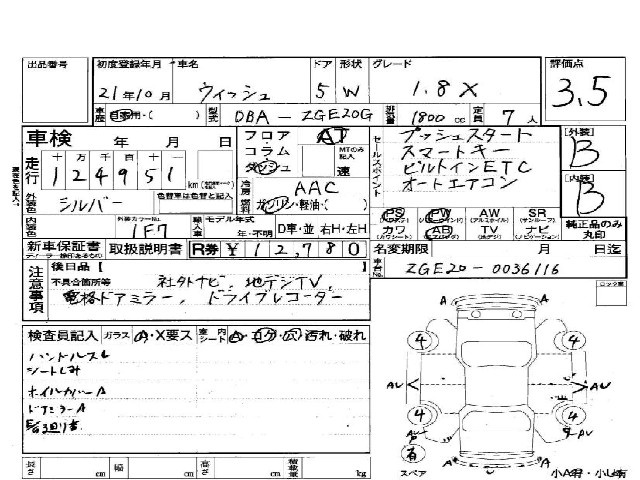 出品番号 初度登録年月 車名 ドア 形状 グレード 評価点
21年10月 ウィッシュ 5 W 1.8X 3.5
車歴 自家用・( ) 型式 DBA-ZGE20G 排気量 1800cc 定員 7人
車検 年 月 日 フロア・コラム・ダッシュ AT MTのみ記入 速
走行 十 万 千 百 十 一
124951 km
冷房 AAC
燃料 ガソリン・軽油・( )
セールスポイント
プッシュスタート
スマートキー
ビルトインETC
オートエアコン
[外装] B
[内装] B
外装色 シルバー 色替車は色替と記入
内装色 外装カラーNo. 1F7 輸入車 モデル年式 年・不明 D車・並 右H・左H
PS PW AW SR
(パワーウインド) (アルミホイル) (サンルーフ)
カワ AB TV ナビ
純正品のみ丸印
新車保証書 取扱説明書 R券 ¥12,780
名変期限 月 日迄
車台No. ZGE20-0036116
注意事項
後日品[ ]
不具合箇所等 社外ナビ、地デジTV、
電格ドアミラー、ドライブレコーダー
検査員記入 ガラス A・X要ス 室内シート A・コゲ・穴・汚れ・破れ
ハンドルスレ
シートしみ
ホイルカバーA
ドアミラーA
4 4
AU AU
4 4
有
スペア
A A
小A有・小U有
長さ cm 幅 cm 高さ cm 積載量 kg